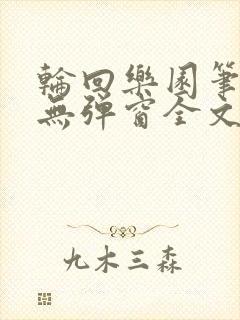 輪回樂園筆
無彈窗全文
九木三森